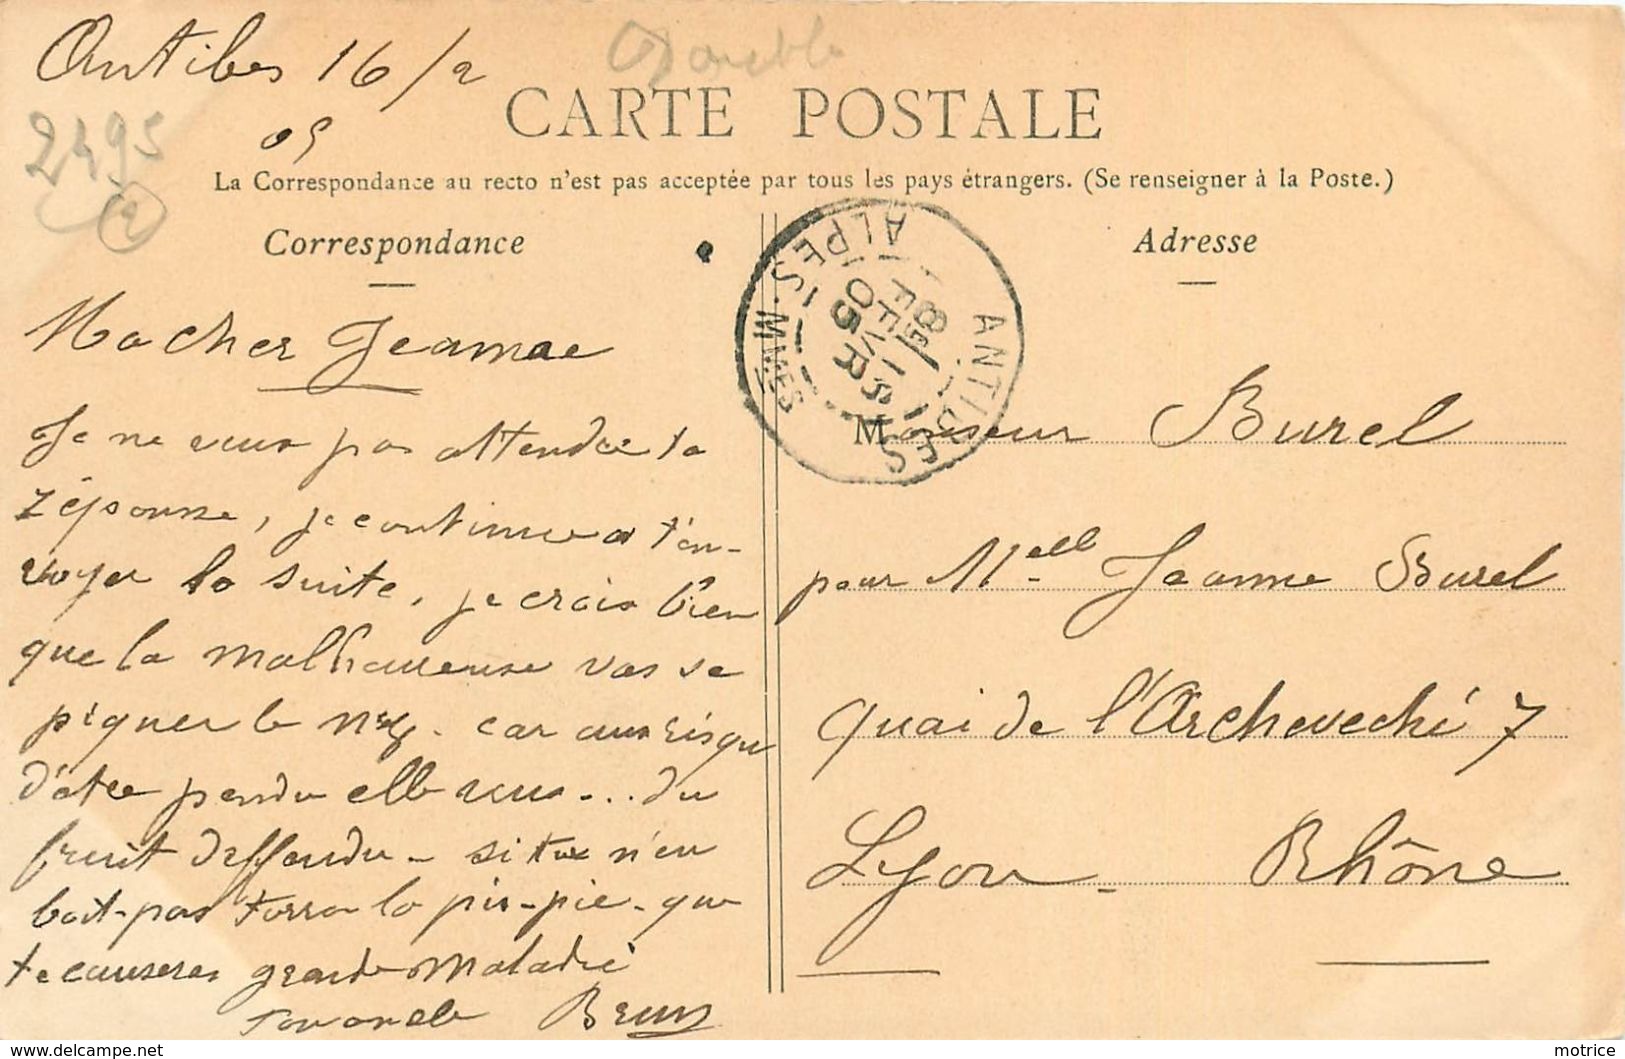 Antibes 16/2
05
2495
2
CARTE POSTALE
La Correspondance au recto n'est pas acceptée par tous les pays étrangers. (Se renseigner à la Poste.)
Correspondance
Ma cher Jeanne
Je ne veux pas attendre ta
réponse, je continue a t'en-
voyer la suite, je crois bien
que la malheureuse vas se
piquer le nez. car aux risque
d'etre pendu elle veux... du
fruit deffendu - si tu n'en
boit-pas tu la pis-pie - que
te causeras grande Maladie
Ton oncle Brun
ANTIBES
ALPES-MMES
8E
15
FEVR
05
Adresse
Monsieur Burel
pour Melle Jeanne Burel
Quai de l'Archeveché 7
Lyon - Rhône
delcampe.net
motrice